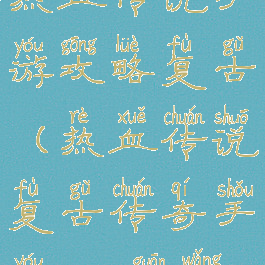 yóu gōng lüè fù gǔ
游攻略复古
rè xuè chuán shuō
(热血传说
fù gǔ chuán qí shǒu
复古传奇手
yóu guān wǎng